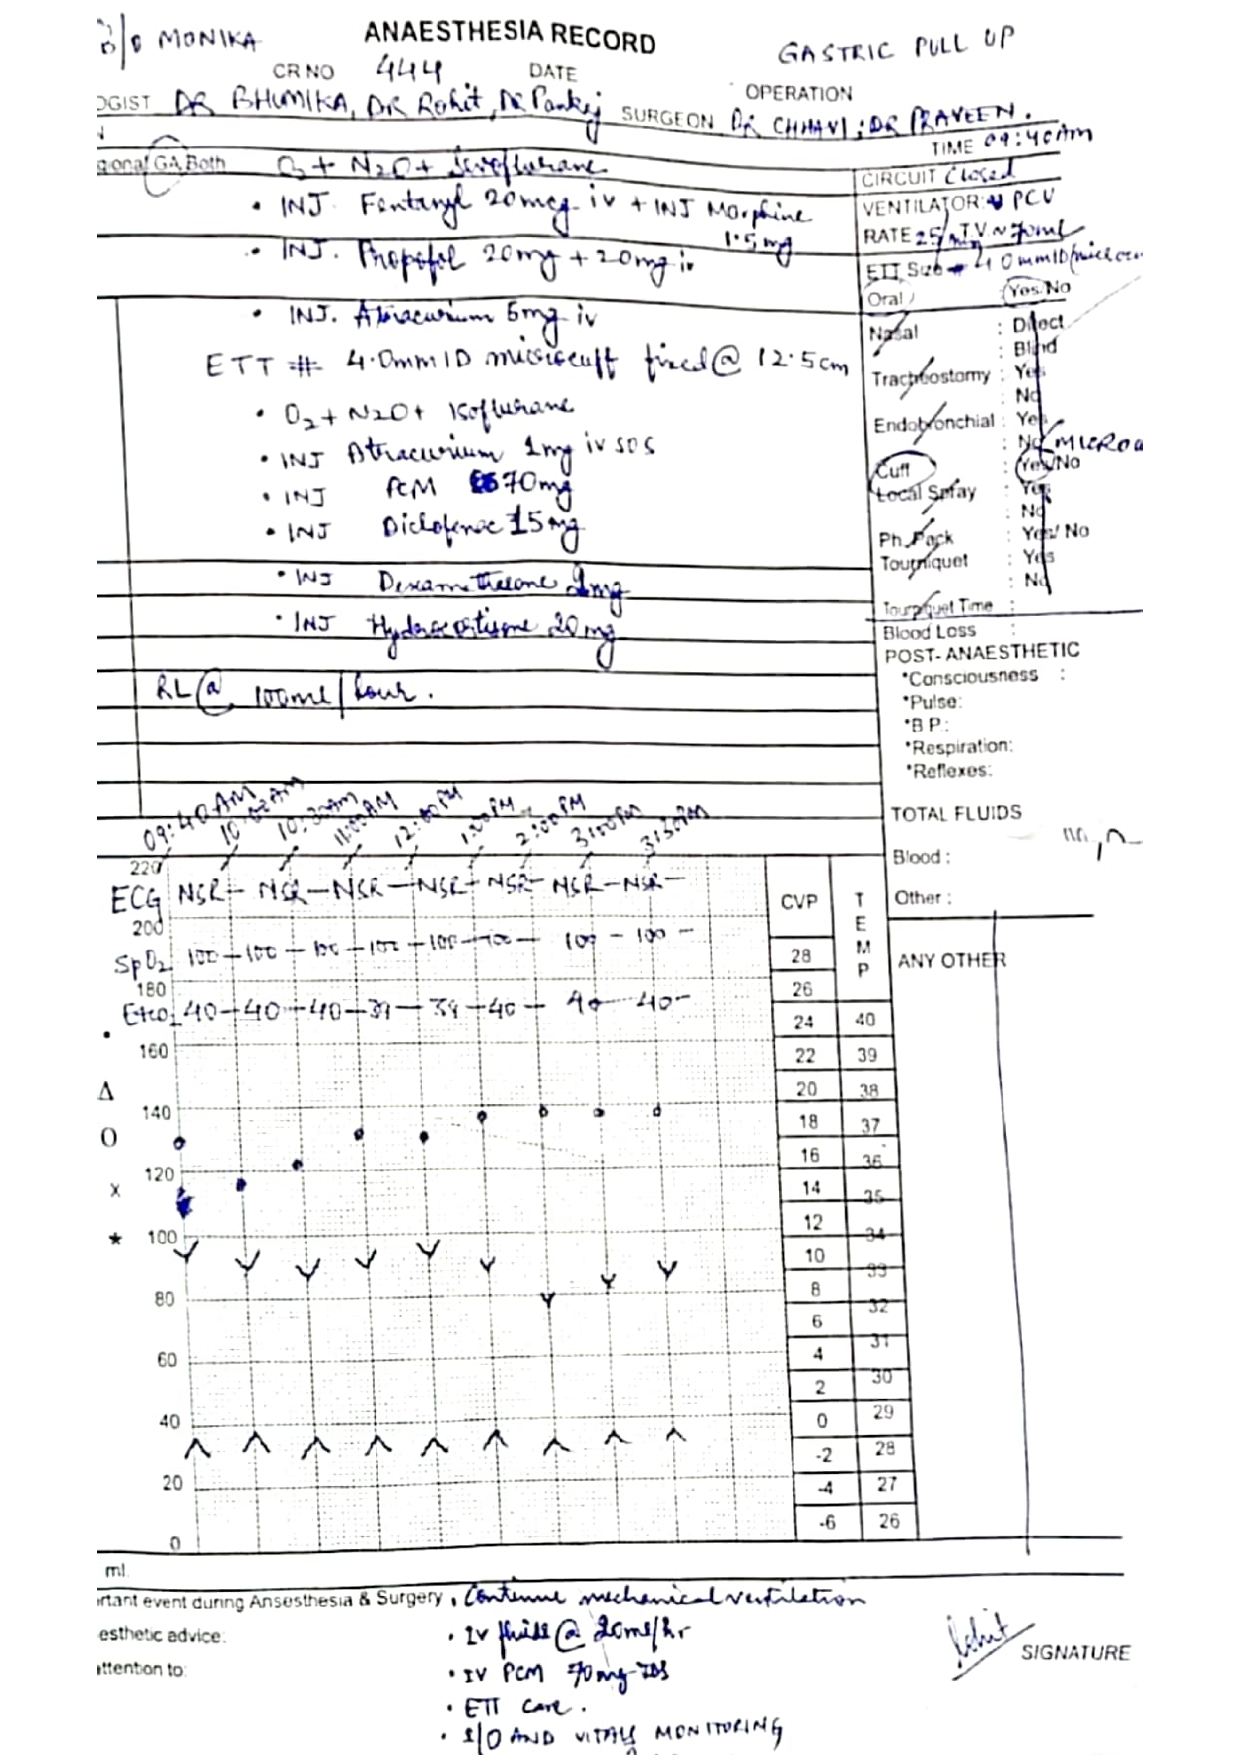 B/O MONIKA
ANAESTHESIA RECORD
GASTRIC PULL UP
CR NO 444 DATE
OPERATION
OGIST DR BHUMIKA, DR Rohit, Dr Pankaj SURGEON DR CHHAVI; DR PRAVEEN.
TIME 09:40AM
gional GA Both O2 + N2O + Sevoflurane
CIRCUIT Closed
• INJ. Fentanyl 20mcg iv + INJ Morphine 1.5mg
VENTILATOR: PCV
RATE 25/min T.V ~ 70ml
• INJ. Propofol 20mg + 20mg iv
ETT Size 4.0mmID/microcu
Oral Yes/No
• INJ. Atracurium 5mg iv
Nasal : Direct
Blind
ETT # 4.0mm ID microcuff fixed @ 12.5cm
Tracheostomy : Yes
No
• O2 + N2O + Isoflurane
Endobronchial : Yes
: No MICROC
• INJ Atracurium 1mg iv SOS
Cuff Yes/No
• INJ PCM 70mg
Local Spray : Yes
No
• INJ Diclofenac 15mg
Ph. Pack : Yes/ No
Tourniquet : Yes
: No
• INJ Dexamethasone 2mg
Tourniquet Time :
• INJ Hydrocortisone 20mg
Blood Loss :
POST- ANAESTHETIC
*Consciousness :
RL @ 100ml/hour.
*Pulse:
*B P.:
*Respiration:
*Reflexes:
TOTAL FLUIDS
09:40AM 10:00AM 10:30AM 11:00AM 12:00PM 1:00PM 2:00PM 3:00PM 3:30PM
Blood :
Other :
ANY OTHER
220
ECG NSR – NSR – NSR – NSR – NSR – NSR – NSR –
200
SpO2 100 – 100 – 100 – 100 – 100 – 100 – 100 – 100 –
180
Etco2 40 – 40 – 40 – 39 – 39 – 40 – 40 – 40 –
CVP TEMP
160
140
120
100
80
60
40
20
0
Δ
O
x
*
28
26
24 40
22 39
20 38
18 37
16 36
14 35
12 34
10 33
8 32
6 31
4 30
2 29
0 28
-2 27
-4 26
-6
ml.
rtant event during Ansesthesia & Surgery • Continue mechanical ventilation
esthetic advice: • IV fluids @ 20ml/hr
attention to: • IV PCM 70mg TDS
• ETT care.
• I/O AND VITALS MONITORING
Rohit
SIGNATURE